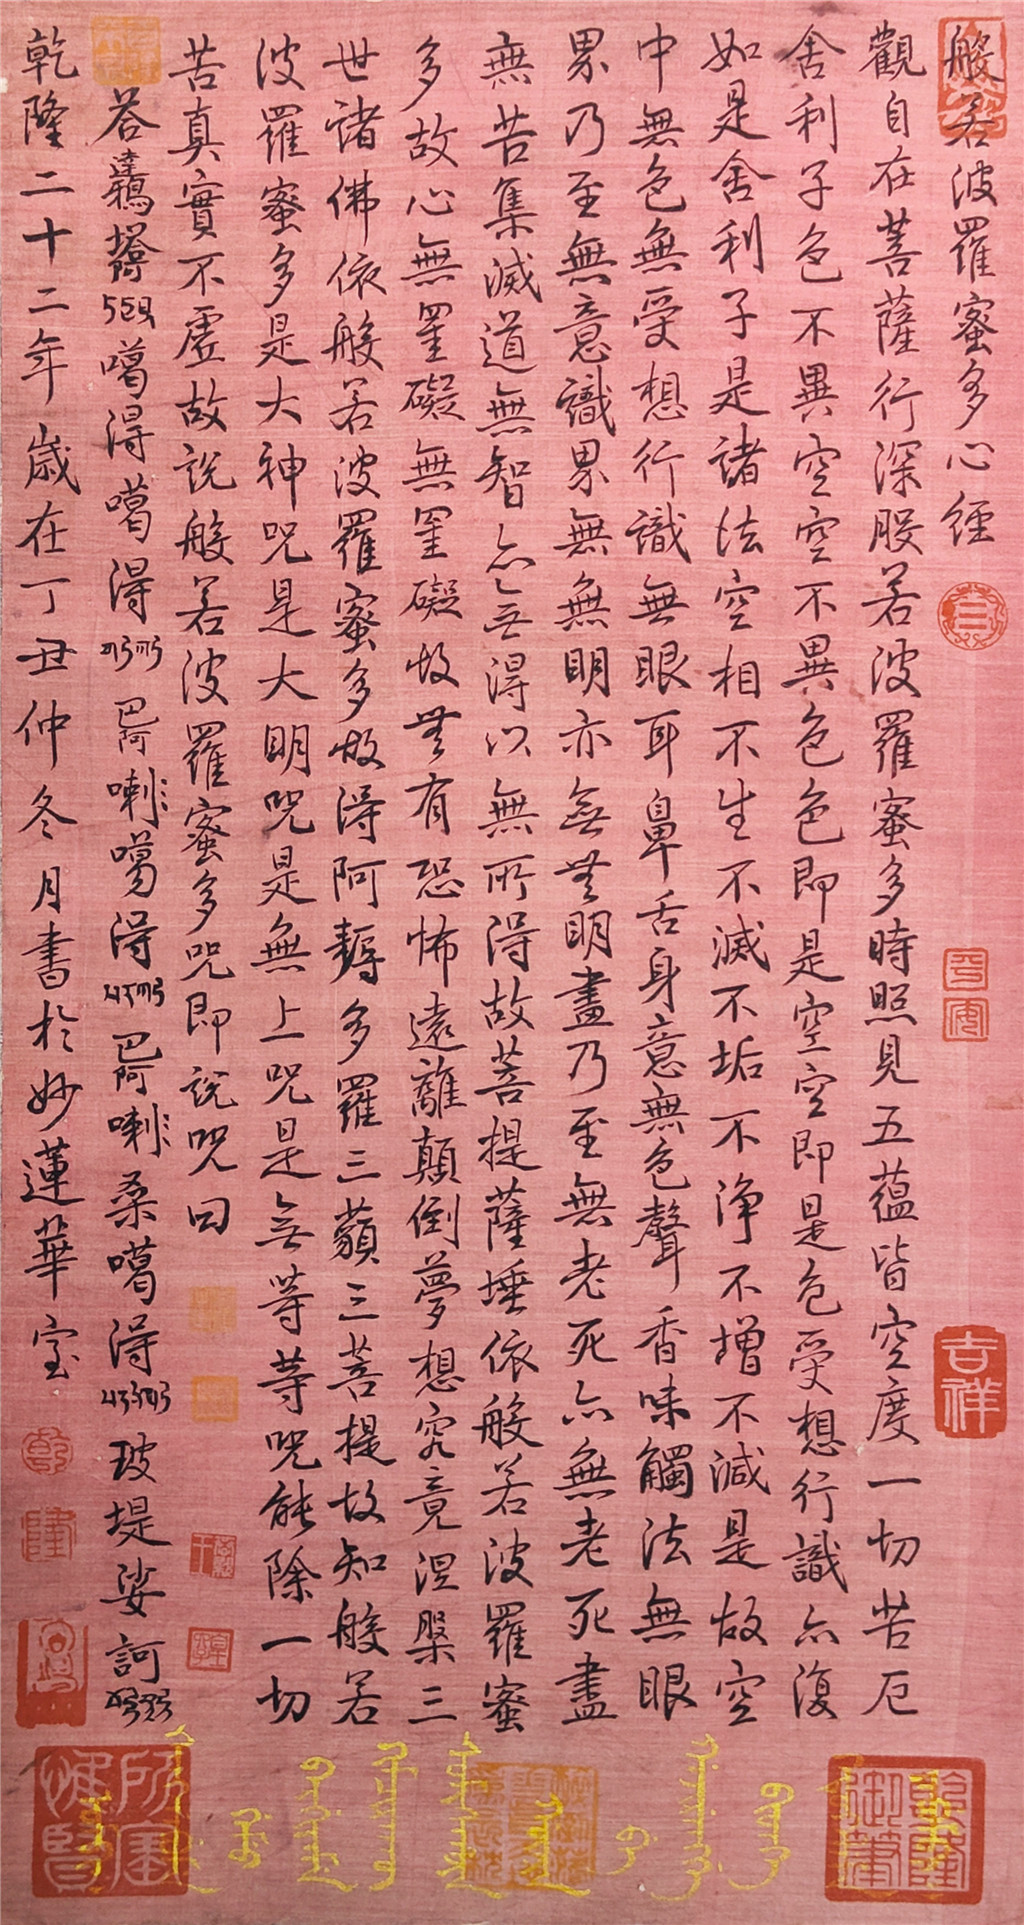 般若波羅蜜多心經
觀自在菩薩行深般若波羅蜜多時照見五蘊皆空度一切苦厄
舍利子色不異空空不異色色即是空空即是色受想行識亦復
如是舍利子是諸法空相不生不滅不垢不净不增不減是故空
中無色無受想行識無眼耳鼻舌身意無色聲香味觸法無眼
界乃至無意識界無無明亦無無明盡乃至無老死亦無老死盡
無苦集滅道無智亦無得以無所得故菩提薩埵依般若波羅蜜
多故心無罣礙無罣礙故無有恐怖遠離顛倒夢想究竟涅槃三
世諸佛依般若波羅蜜多故得阿耨多羅三藐三菩提故知般若
波羅蜜多是大神咒是大明咒是無上咒是無等等咒能除一切
苦真實不虛故說般若波羅蜜多咒即說咒曰
答達鴉塔噶得噶得巴阿喇噶得巴阿喇桑噶得玻堤娑訶
乾隆二十二年歲在丁丑仲冬月書於妙蓮華室
吉祥
乾隆御筆
乾
隆
所寶惟賢